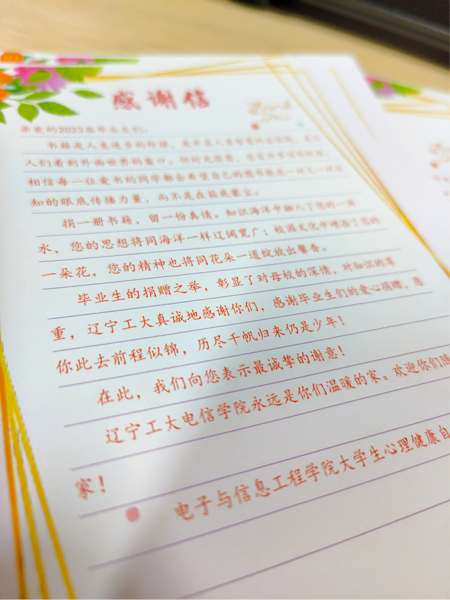 感谢信
亲爱的2023届毕业生们:
书籍是人类进步的阶梯,
人们看到外面世界的窗口。
相信每一位爱书的同学都会希望自己的图书能在一双又一双求
知的眼底传播力量,而不是在箱底蒙尘。
捐一册书籍,留一份真情。知识海洋中融入了您的一滴
水,您的思想将同海洋一样辽阔宽广;校园文化中增添了您的
一朵花,您的精神也将同花朵一道绽放出馨香。
毕业生的捐赠之举,彰显了对母校的深情,对知识的尊
重,辽宁工大真诚地感谢你们,感谢毕业生们的爱心捐赠,愿
你此去前程似锦,历尽千帆归来仍是少年!
在此,我们向您表示最诚挚的谢意!
辽宁工大电信学院永远是你们温暖的家。欢迎你们
家!
电子与信息工程学院大学生心理健康自